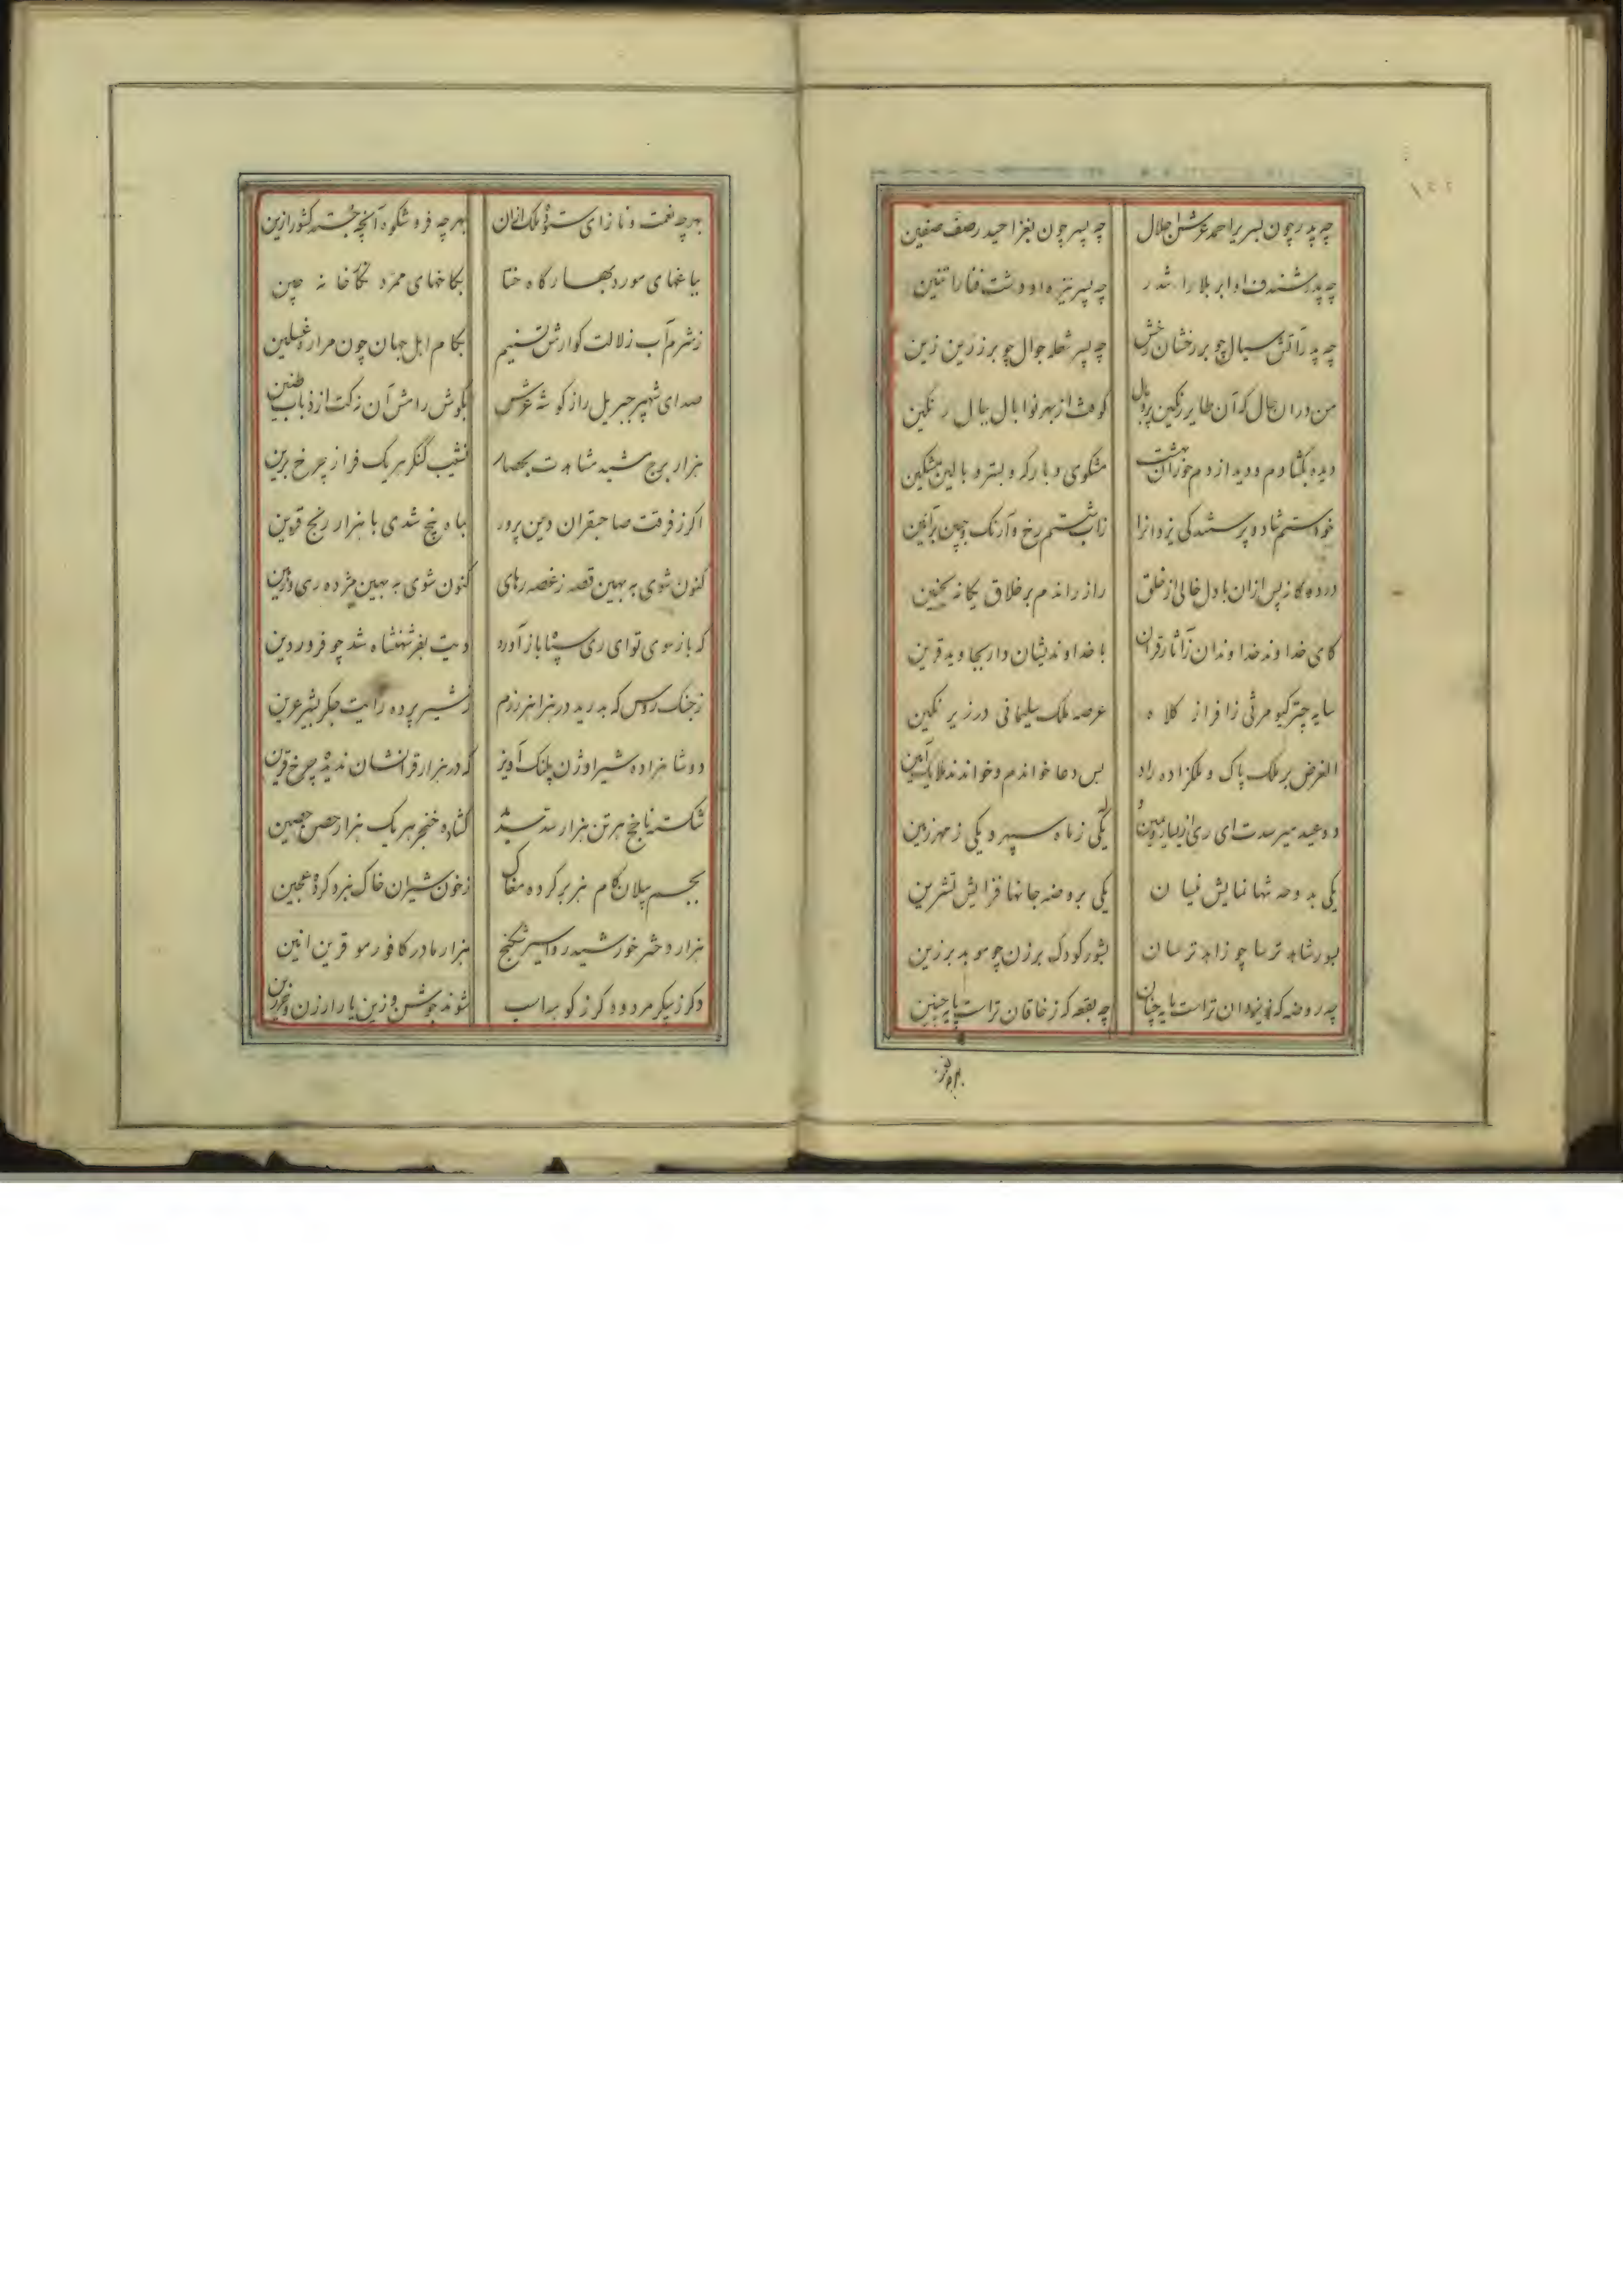 چه پدر چون بسریر احمد عرش اجلال
چه پسر چون بغزا حیدر صف صفین
چه پدر شندف او ابر بلا را تندر
چه پسر نیزه او دشت فنا را تنین
چه پدر آتش سیال چو بر رخشان رخش
چه پسر شعله جوال چو بر زرین زین
من دران حال که آن طایر رنگین پر و بال
کوفت از بهر نوا بال ببال رنگین
دیده بگشادم و دیدم از دم خور
مشکوی و بارگه و بستر و بالین مشکین
خود شستم شاد و پرستندگی یزدانرا
زاب شستم رخ و آژنگ جبین بر آئین
در دوگانه پس ازان با دل خالی از خلق
راز راندم بر خلاق یگانه بحنین
کای خداوند خداوندان ز آثار قران
با خداوندیشان دار بجاوید قرین
سایه چتر کیومرثی زافراز کلاه
عرصه ملک سلیمانی در زیر نگین
الغرض بر ملک پاک و ملکزاده راد
بس دعا خواندم و خواندند ملایک آمین
دو عید میرسدت ای ری از یسار و یمین
یکی ز ماه سپهر و یکی ز مهر زمین
یکی به دوحه شهانمایش نیسان
یکی بروضه جانها فزایش تشرین
بسور شاهد ترسا چو زاهد ترسان
بشور کودک برزن چو موبد برزین
چه روضه که ز یزدان تراست پایه چنان
چه بقعه که ز خاقان تراست پایه چنین
بهر چه
بهر چه نعمت و ناز ای ستوده ملک ازان
بهر چه فر و شکوه آنچه خجسته کشور ازین
بباغهای مورد بهارگاه ختا
بکاخهای ممرد نگارخانه چین
ز شرم آب زلالت گوارش تسنیم
بکام اهل جهان چون مرارت غسلین
صدای شهپر جبریل راز گوشه عرش
بگوش رامش آن زکت از ذباب طنین
هزار برج مشید مشاهدت بحصار
نشیب کنگر هر یک فراز چرخ برین
اگر ز فرقت صاحبقران دین پرور
بماه پنج شدی با هزار رنج قرین
کنون شوی به بهین قصه ز غصه رهای
کنون شوی به مهین مژده ری وزین
که باز سوی تو ای ری سپاه باز آورد
دیت بفر شهنشاه شد چو فروردین
ز جنگ روس که بدرید در هزاهز رزم
ز شیر پرده رایت جگر بشیر عرین
دو شاهزاده شیراوژن پلنگ آویز
که در هزار قرانشان ندیده چرخ قرین
شکسته ناچخ هر تن هزار سد سدید
گشاده خنجر هر یک هزار حصن حصین
بجسم پیلان کام هژبر کرده مغاک
ز خون شیران خاک نبرد کرده عجین
هزار دختر خورشید رو اسیر شکنج
هزار مادر کافور مو قرین انین
دگر ز پیکر مرد و دگر ز کوهه اسب
شوند جوشن و زین یار ارزن و